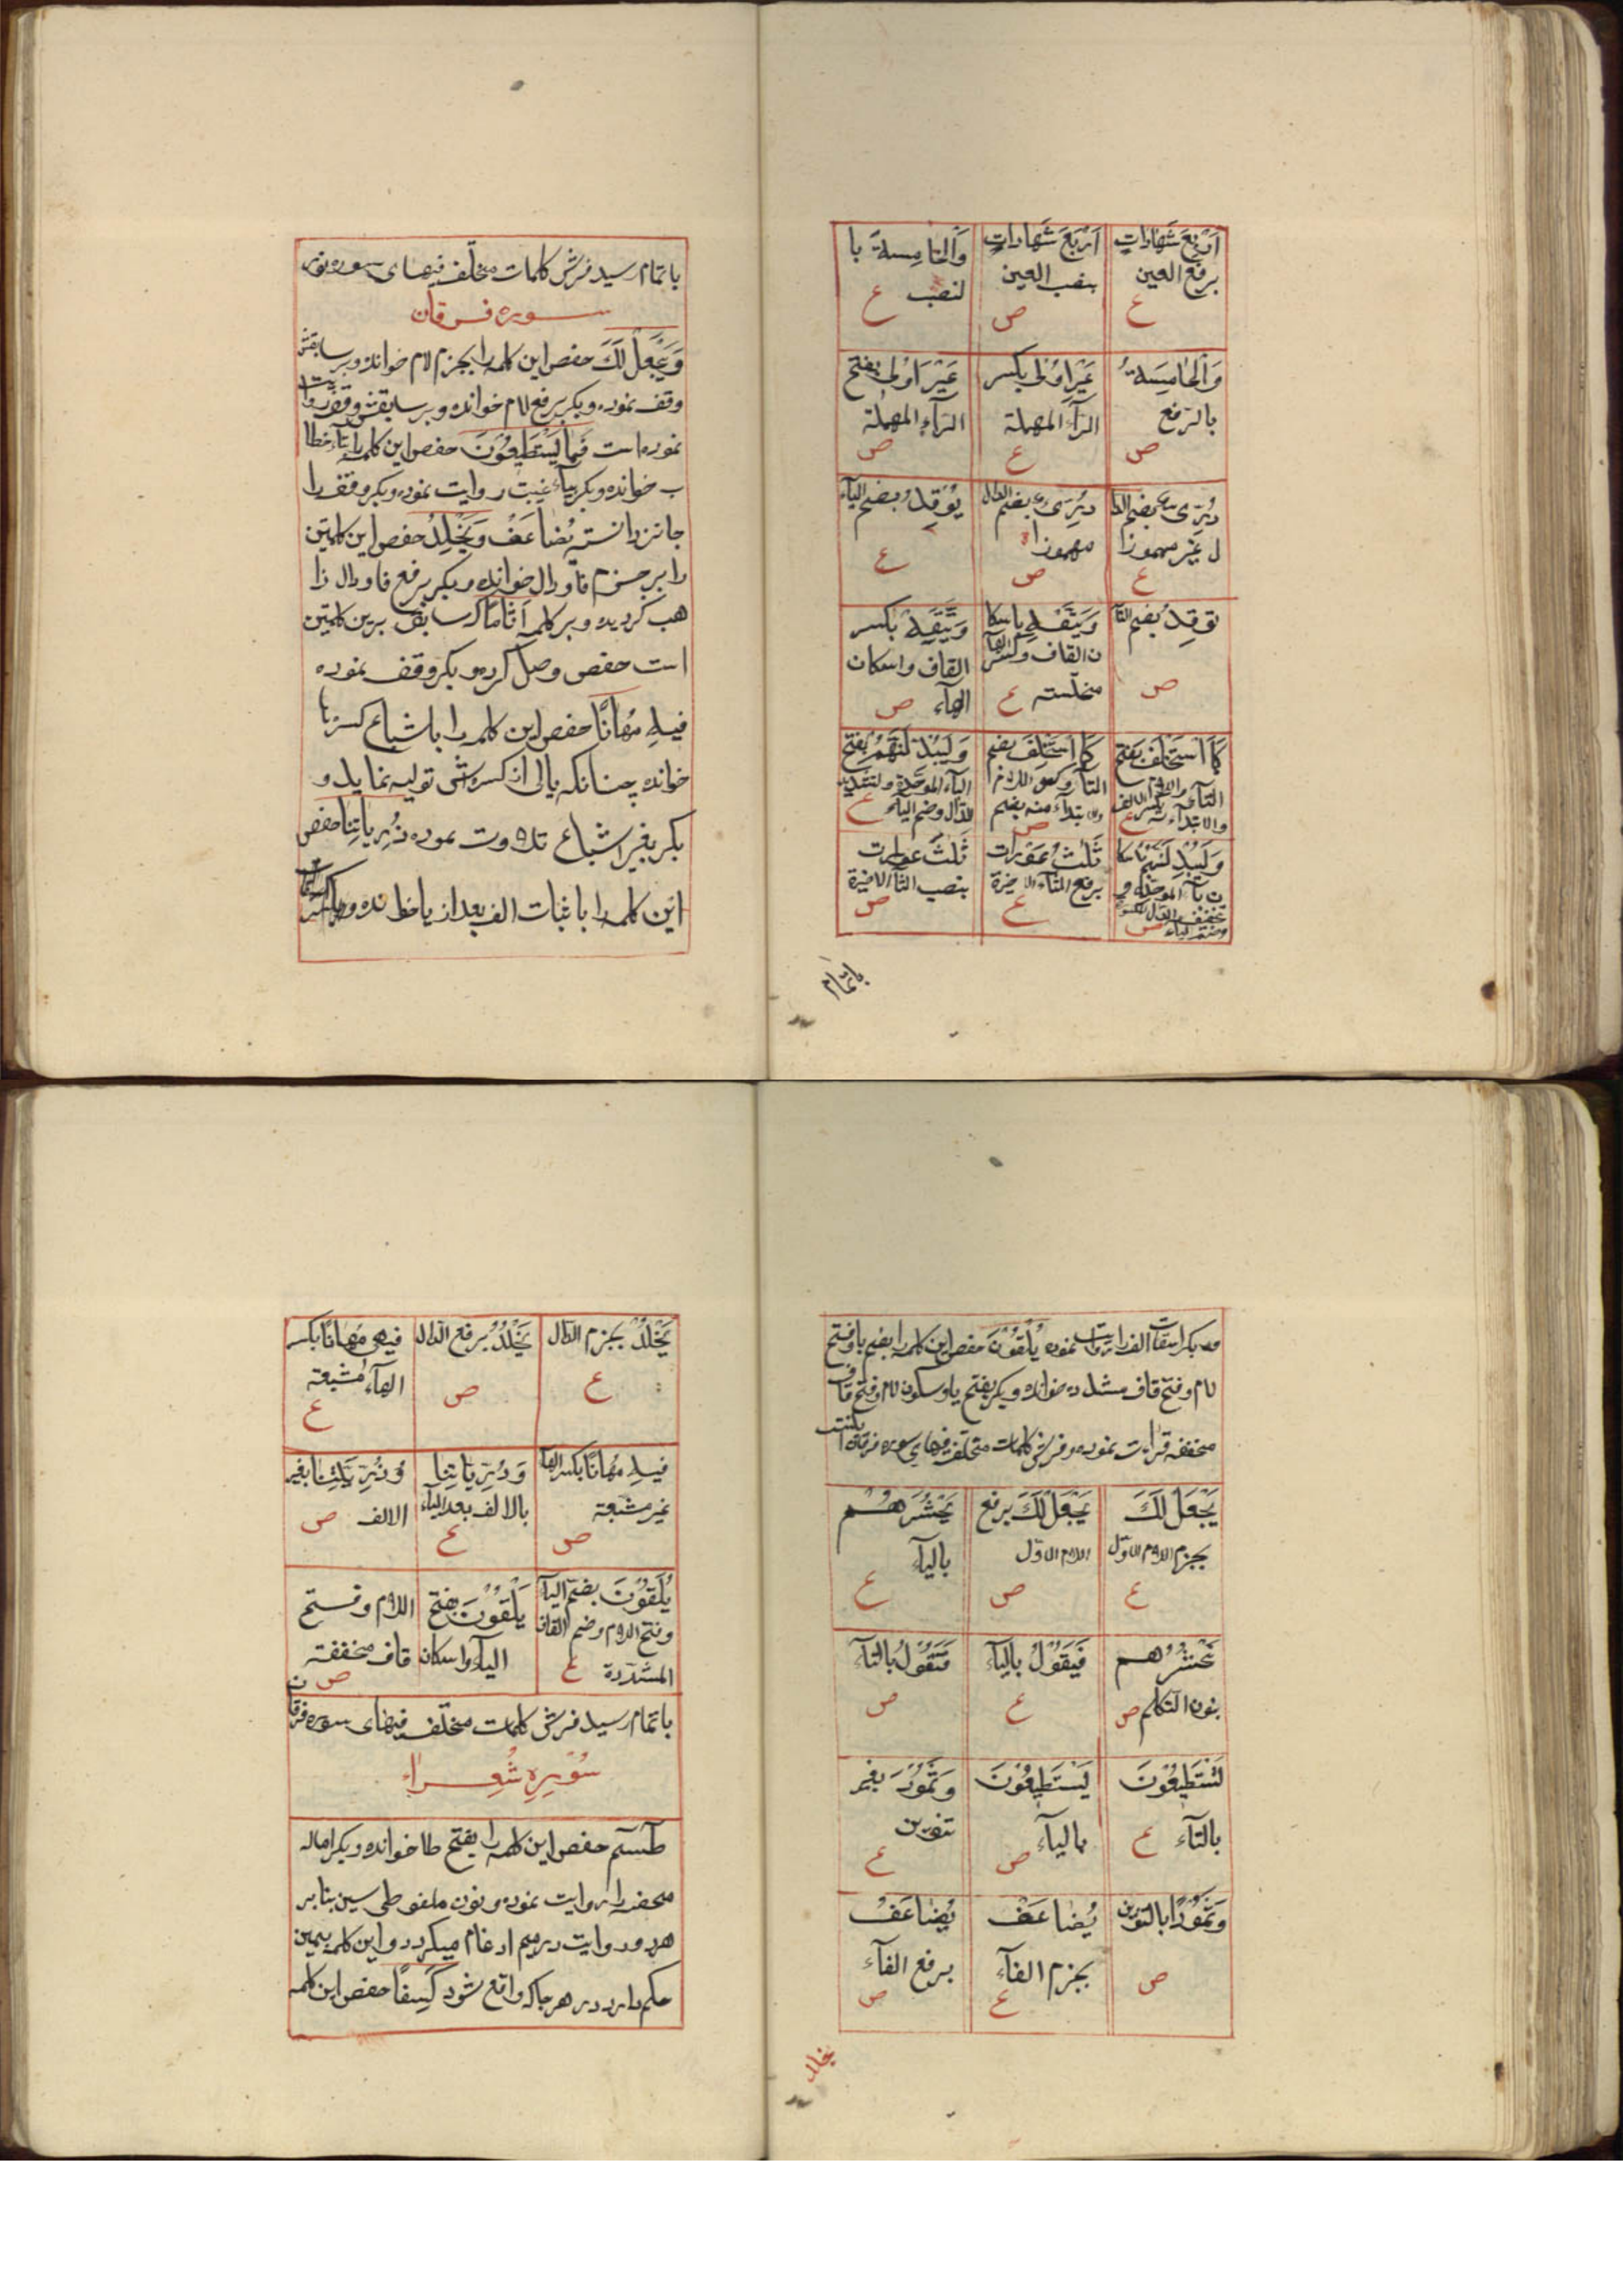 اَرْبَعُ شَهَادَاتٍ
برفع العين
ع
اَرْبَعَ شَهَادَاتٍ
بنصب العين
ص
وَالْخَامِسَةَ با
لنصب ع
وَالْخَامِسَةُ
بالرفع
ص
غَيْرِ اُولِى بكسر
الرآء المهملة
ع
غَيْرَ اُولِى بفتح
الرآء المهملة
ص
دُرِّىٌّ بضم الدا
ل غير مهموزا
ع
دُرِّىءٌ بضم الدال
مهموزا
ص
يُوْقَدُ بضم اليآء
ع
توقد بضم التا
ص
وَيَتَّقْهِ باسكا
ن القاف وكسر الهآ
مختلسته ع
وَيَتَّقِهْ بكسر
القاف واسكان
الهآء ص
كَمَا اسْتَخْلَفَ بفتح
التآء واللام
والابتدآء بكسر الالف ع
كَمَا اسْتُخْلِفَ بضم
التآء وكسر اللام
والابتدآء منه بضم
ص
وَلَيُبَدِّلَنَّهُمْ بفتح
البآء الموحدة وتشديد
الدال وضم اليآء ع
وَلَيُبْدِلَنَّهُمْ باسكا
ن بآء الموحدة و
تخفيف الدال
وضم اليآء ص
ثَلٰثُ عَوْرَات
برفع الثآء الاخيرة
ع
ثَلٰثَ عورات
بنصب الثآء الاخيرة
ص
باتمام
باتمام رسيد فرش كلمات مختلف فيهاى سوره نور
سوره فرقان
وَيَجْعَلْ لَكَ حفص اين كلمه را بجزم لام خوانده وبر سابقش
وقف نموده وبكر برفع لام خوانده وبر سابقش وقف روايت
نموده است فَمَا يَسْتَطِيعُونَ حفص اين كلمه را بتآء خطا
ب خوانده وبكر بيآء غيبت روايت نموده وبكر وقف را
جائز دانسته يُضَاعَفْ وَيَخْلُدْ حفص اين كلمتين
را بر جزم فا ودال خوانده وبكر برفع فا ودال ذا
هب كرديده وبر كلمه اَثَامًا كه سابق برين كلمتين
است حفص وصل كرده وبكر وقف نموده
فِيهِ مُهَانًا حفص اين كلمه را باشباع كسر ها
خوانده چنانكه يائى از كسره اش توليد نمايد و
بكر بغير اشباع تلاوت نموده ذُرِّيَّاتِنَا حفص
اين كلمه را باثبات الف بعد از يا خوانده
وبكر اسقاط الف را روايت نموده يُلَقَّوْنَ حفص اين كلمه را بضم يا وفتح
لام وفتح قاف مشدده خوانده وبكر بفتح يا وسكون لام وفتح قاف
مخففه قرائت نموده وفرش كلمات مختلف فيهاى سوره فرقان اينست
يَجْعَلْ لَكَ
بجزم اللام الاوّل
ع
يَجْعَلُ لَكَ برفع
اللام الاوّل
ص
يَحْشُرُهُمْ
باليآء
ع
نَحْشُرُهُمْ
بنون التكلم ص
فَيَقُولُ باليآء
ع
فَتَقُولُ بالتآء
ص
تَسْتَطِيعُونَ
بالتآء ع
يَسْتَطِيعُونَ
باليآء ص
وَثَمُودَ بغير
تنوين
ع
وَثَمُودًا بالتنوين
ص
يُضَاعَفْ
بجزم الفآء
ع
يُضَاعَفُ
برفع الفآء
ص
يخلد
يَخْلُدْ بجزم الدال
ع
يَخْلُدُ برفع الدال
ص
فيهى مُهَانًا بكسر
الهآء مشبعة
ع
فيهِ مُهَانًا بكسر الهآ
غير مشبعة
ص
وَذُرِّيَّاتِنَا
بالالف بعد اليآء
ع
وَذُرِّيَّتِنَا بغير
الالف ص
يُلَقَّوْنَ بضم اليآ
وفتح اللام وضم القاف
المشددة ع
يَلْقَوْنَ بفتح
اليآء واسكان
اللام وفتح
قاف مخففة
ص
باتمام رسيد فرش كلمات مختلف فيهاى سوره فرقان
سُوْرهِ شُعراء
طٓسٓمٓ حفص اين كلمه را بفتح طا خوانده وبكر اماله
محضه را روايت نموده ونون ملفوظى سين بنا بر
هر دو روايت در ميم ادغام ميكردد واين كلمه بهمين
حكم دارد در هر جا كه واقع شود كِسَفًا حفص اين كلمه